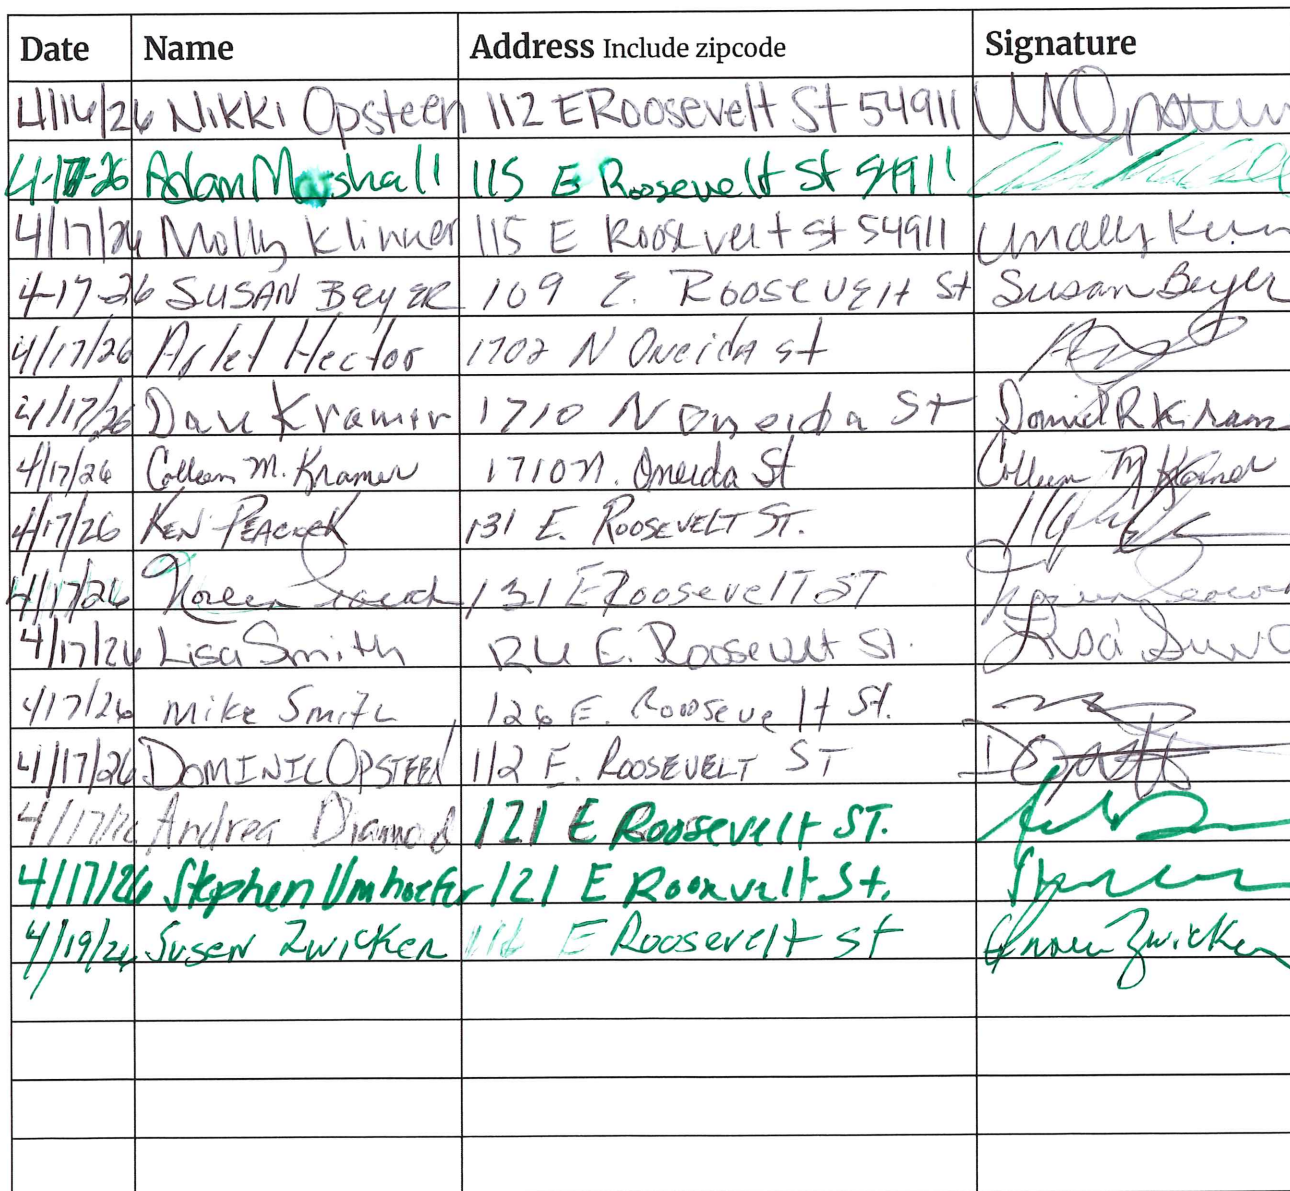 Date Name Address Include zipcode Signature
4/16/26 Nikki Opsteen 112 E Roosevelt St 54911
4-17-26 Adam Marshall 115 E Roosevelt St 54911
4/17/26 Molly Klinner 115 E Roosevelt St 54911
4-17-26 SUSAN BEYER 109 E. ROOSEVElt St Susan Beyer
4/17/26 Arlet Hector 1702 N Oneida st
4/17/26 Dave Kramer 1710 N Oneida St Daniel R Kramer
4/17/26 Colleen M. Kramer 1710 N. Oneida St Colleen M Kramer
4/17/26 KEN PEACOCK 131 E. ROOSEVELT ST.
4/17/26 Noreen 131 E RooseveltT ST
4/17/26 Lisa Smith E. Roosevelt St.
4/17/26 Mike Smith 126 E. Roosevelt St.
4/17/26 DOMINIC OPSTEEN 112 E. ROOSEVELT ST
4/17/26 Andrea Diamond 121 E Roosevelt ST.
4/17/26 Stephen Umhoefer 121 E Roosevelt St.
4/19/26 Susen Zwicker 116 E Roosevelt St Zwicker